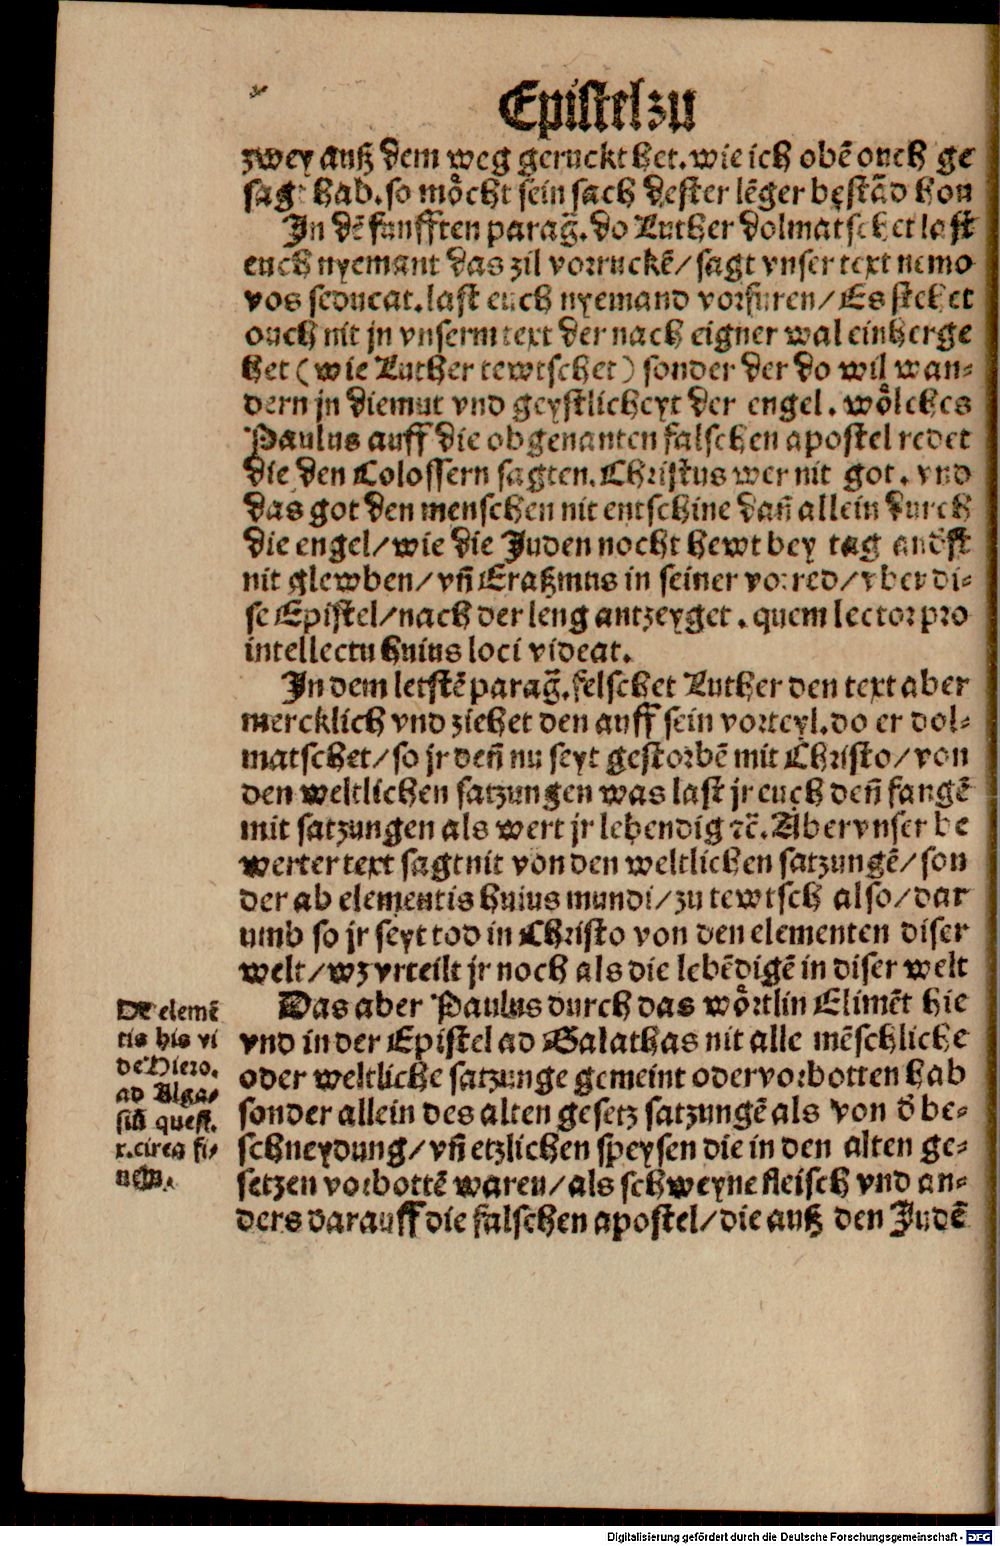 Epistel zu
zwey auß dem weg geruckt het. wie ich obē ouch ge
sagt hab. so mȯcht sein sach dester lēger bestād hon
In dē funfften parag̃. do Luther dolmatschet last
euch nyemant das zil vorruckē/ sagt vnser text nemo
vos seducat. last euch nyemand vorfuren/ Es stehet
ouch nit jn vnserm text der nach eigner wal einherge
het (wie Luther tewtschet) sonder der do wil wan-
dern jn diemut vnd geystlicheyt der engel. wȯlches
Paulus auff die obgenanten falschen apostel redet
die den Colossern sagten. Christus wer nit got. vnd
das got den menschen nit entschine dañ allein durch
die engel/ wie die Juden nocht hewt bey tag anđst
nit glewben/ vñ Eraßmus in seiner vorred/ vber di-
se Epistel/ nach der leng antzeyget. quem lector pro
intellectu huius loci videat.
In dem letstē parag̃. felschet Luther den text aber
mercklich vnd ziehet den auff sein vorteyl. do er dol-
matschet/ so jr deñ nu seyt gestorbē mit Christo/ von
den weltlichen satzungen was last jr euch deñ fangē
mit satzungen als wert jr lebendig ⁊c̄. Aber vnser be
werter text sagt nit von den weltlichen satzungē/ son
der ab elementis huius mundi/ zu tewtsch also/ dar
umb so jr seyt tod in Christo von den elementen diser
welt/ wz vrteilt jr noch als die lebēdigē in diser welt
Das aber Paulus durch das wȯrtlin Elimēt hie
vnd in der Epistel ad Galathas nit alle mēschliche
oder weltliche satzunge gemeint oder vorbotten hab
sonder allein des alten gesetz satzungē als von đ be-
schneydung/ vñ etzlichen speysen die in den alten ge-
setzen vorbottē waren/ als schweyne fleisch vnd an-
ders darauff die falschen apostel/ die auß den Judē
De elemē
tis his vi
de Hiero.
ad Alga-
siā quest.
x. circa fi-
nem.
Digitalisierung gefördert durch die Deutsche Forschungsgemeinschaft - DFG